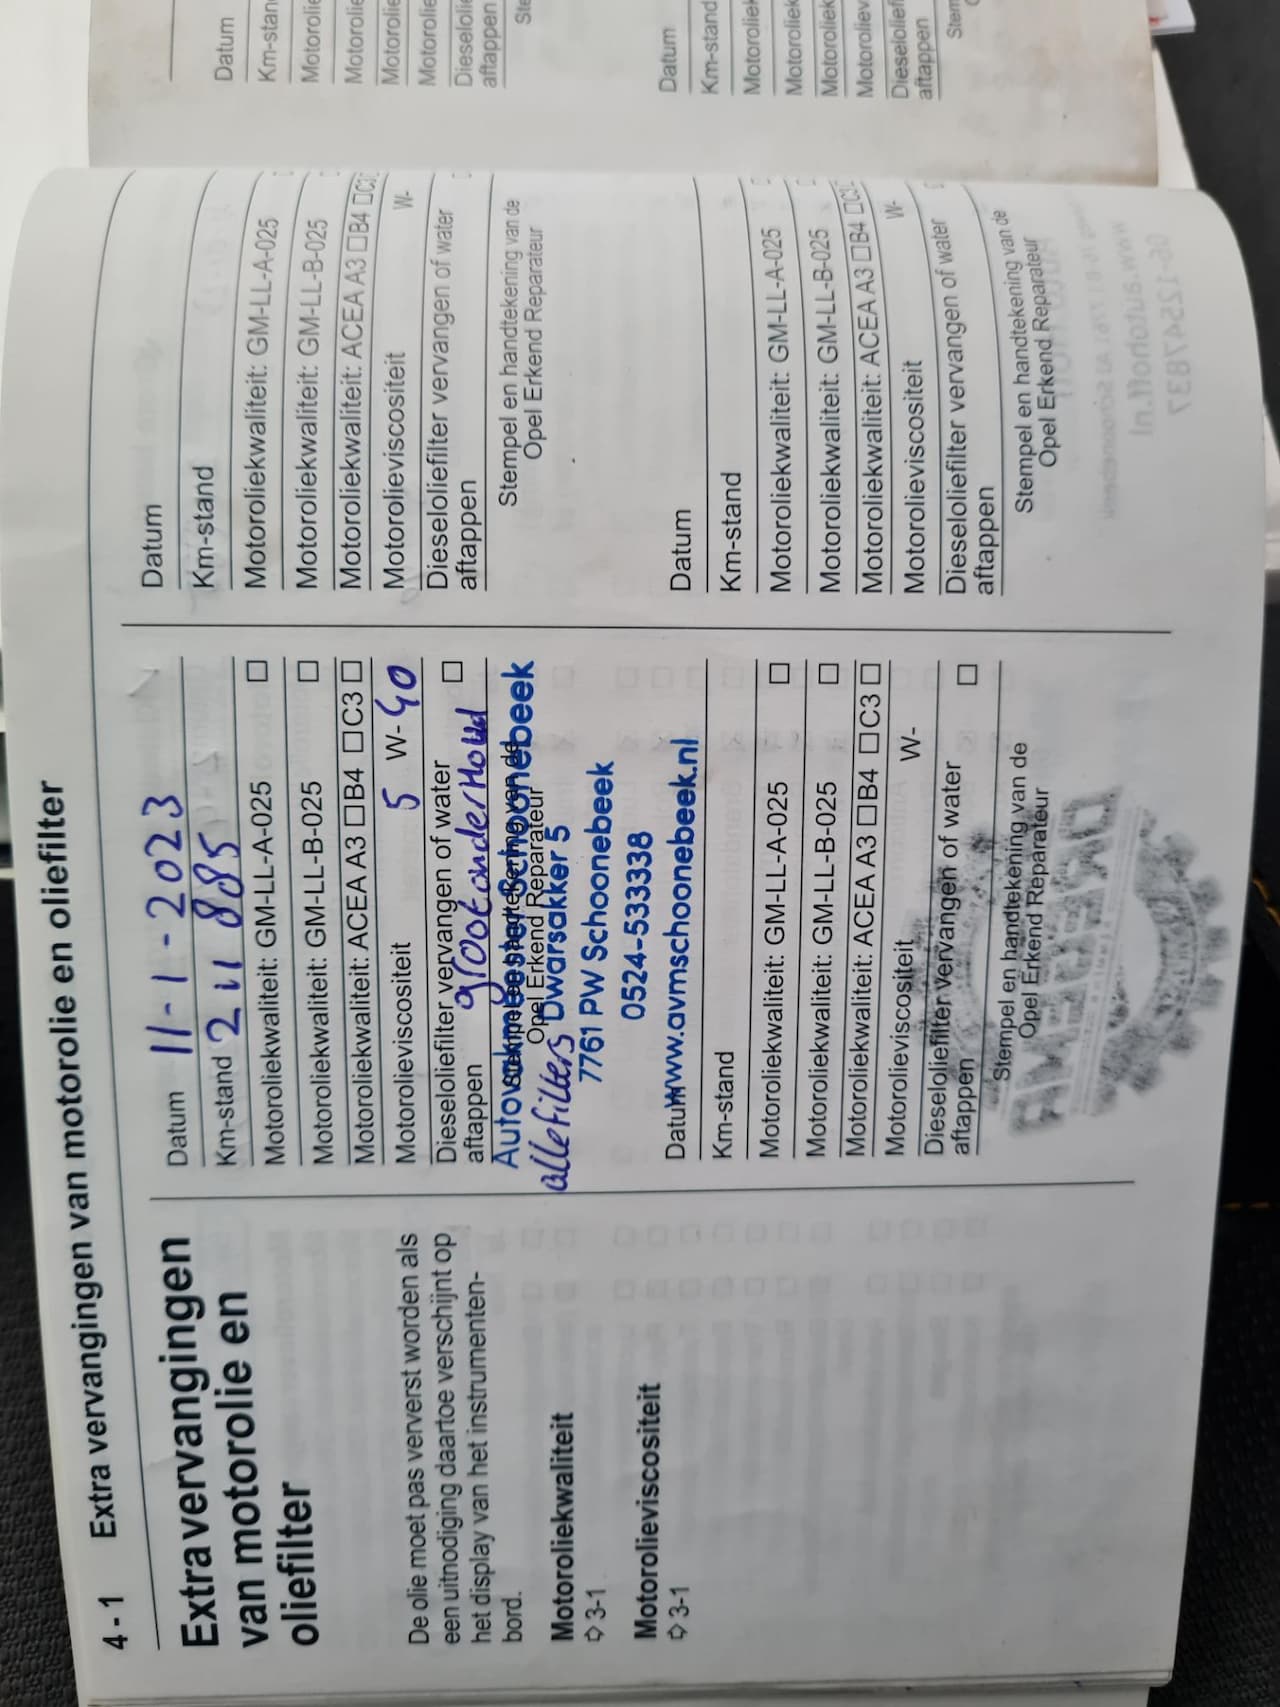 4 - 1 Extra vervangingen van motorolie en oliefilter
Extra vervangingen
van motorolie en
oliefilter
De olie moet pas ververst worden als
een uitnodiging daartoe verschijnt op
het display van het instrumenten-
bord.
Motoroliekwaliteit
⇨ 3-1
Motorolieviscositeit
⇨ 3-1
Datum 11-1-2023
Km-stand 211885
Motoroliekwaliteit: GM-LL-A-025 ☐
Motoroliekwaliteit: GM-LL-B-025 ☐
Motoroliekwaliteit: ACEA A3 ☐B4 ☐C3 ☐
Motorolieviscositeit 5 W-40
Dieseloliefilter vervangen of water
aftappen ☐
groot onderHoud
Stempel en handtekening van de
Opel Erkend Reparateur
Autovakmeester Schoonebeek
alle filters
Dwarsakker 5
7761 PW Schoonebeek
0524-533338
www.avmschoonebeek.nl
Datum
Km-stand
Motoroliekwaliteit: GM-LL-A-025 ☐
Motoroliekwaliteit: GM-LL-B-025 ☐
Motoroliekwaliteit: ACEA A3 ☐B4 ☐C3 ☐
Motorolieviscositeit W-
Dieseloliefilter vervangen of water
aftappen ☐
Stempel en handtekening van de
Opel Erkend Reparateur
Datum
Km-stand
Motoroliekwaliteit: GM-LL-A-025
Motoroliekwaliteit: GM-LL-B-025
Motoroliekwaliteit: ACEA A3 ☐B4 ☐C3
Motorolieviscositeit W-
Dieseloliefilter vervangen of water
aftappen
Stempel en handtekening van de
Opel Erkend Reparateur
Datum
Km-stand
Motoroliekwaliteit: GM-LL-A-025
Motoroliekwaliteit: GM-LL-B-025
Motoroliekwaliteit: ACEA A3 ☐B4 ☐C3
Motorolieviscositeit W-
Dieseloliefilter vervangen of water
aftappen
Stempel en handtekening van de
Opel Erkend Reparateur
Datum
Km-stan
Motorolie
Motorolie
Motorolie
Motorolie
Dieselolie
aftappen
Ste
Datum
Km-stand
Motoroliek
Motoroliek
Motoroliek
Motoroliev
Dieseloliefi
aftappen
Stem